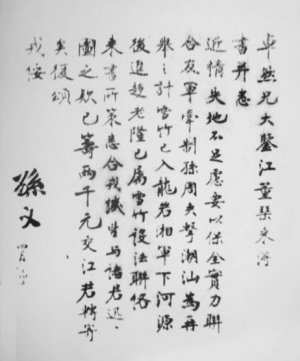 卓然兄大鑒江董琹來得
書并悉
近情失地不足慮要以保全實力聯
合友軍牽制孫周夾擊潮汕為再
舉之計雪竹已入龍岩湘軍下河源
後追趨老隆已屬雪竹設法聯絡
來書所策悉合戎機望與諸君迅
圖之欵已籌兩千元交江君轉寄
矣復頌
戎綏
孫文